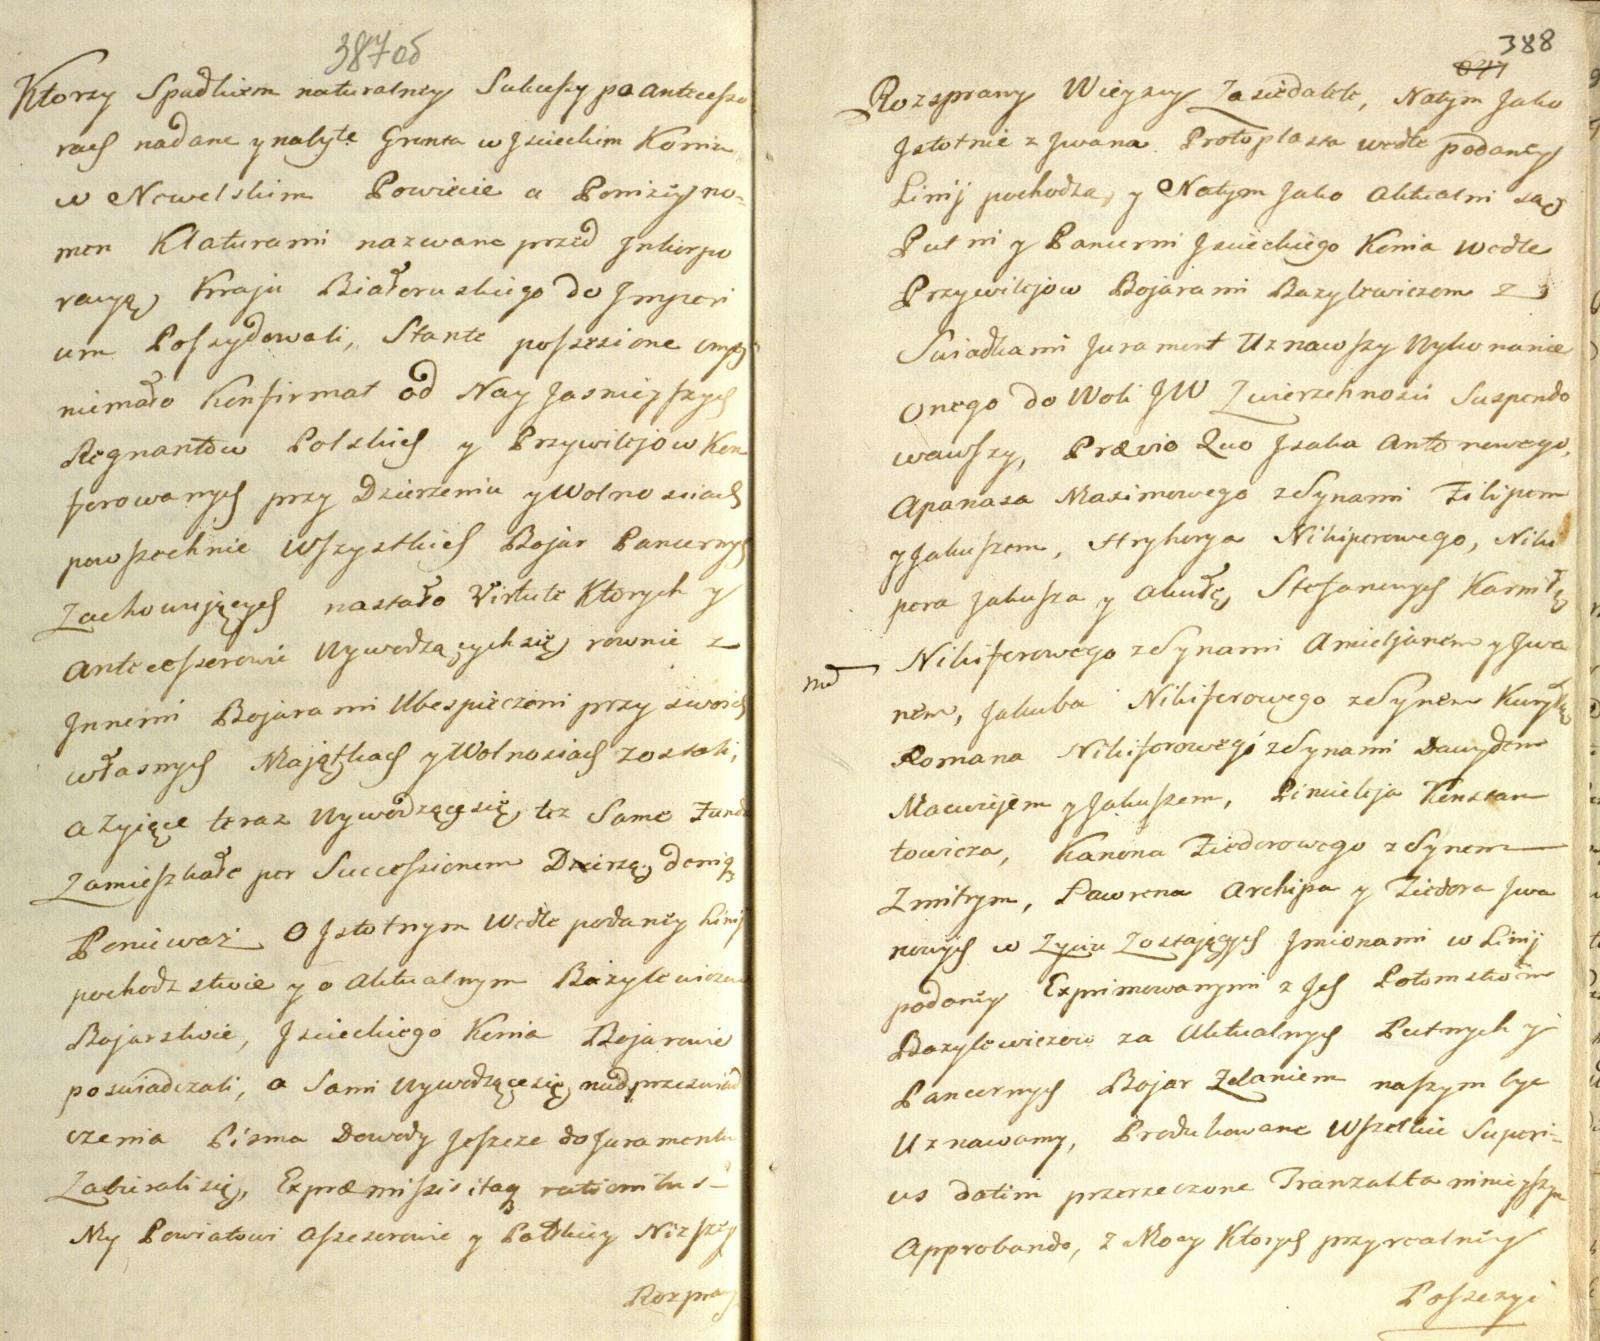 387 об
Ktorzy Spadkiem naturalney Sukeſsy po antecesso
rach nadane y nabyte Grunta w Jsieckim Koniu
w Newelskim Powiecie a Poniżey no-
men Klaturami nazwane przed Jnkorpo
racyą Kraju Białoruskiego do Jmperi
um Poſsydowali, Stante poſseſsione
niemało Konfirmat od Nay Jasnieyſzych
Regnantow Polskich y Przywilejow Kon
ferowanych przy Dzierzeniu y Wolnosciach
powſzechnie Wſzystkich Bojar Pancernych
Zachowujących nastało Virtute Ktorych y
Anteceſsorowie Wywodzących się rownie z
Jnnemi Bojarami Ubespieczeni przy swoich
własnych Majątkach y Wolnosciach zostali,
a żyjące teraz Wywodzące się też Same Fundo
Zamieſzkałe per Succeſsionem Dzierżą, doniq
Ponieważ O Jstotnym Wedle podaney Linij
pochodzstwie y o Aktualnym Bazylewiczow
Bojarstwie, Jsieckiego Konia Bojarowie
poswiadczali, a Sami Wywodzące się nad przeswiad
czenia Pisma Dowody Jeſzcze do Juramentu
Zabierali się, Ex præmiſsis itaq rationibus
My Powiatowi Aſseſsorowie y Polskiey Niżſzey
Rozpraw
388
Rozsprawy Wieyscy Zasiedatele, Natym Jako
Jstotnie z Jwana Protoplasta wedle podaney
Linij pochodzą, y Natym Jako Aktualni są
Putni y Pancerni Jsieckiego Konia wedle
Przywilejow Bojarami Bazylewiczom z
Swiadkami Jurament Uznawſzy Wykonanie
Onego do Woli JW Zwierzchnosci Suspendo
wawſzy, Prævio Quo Jsaka Antonowego,
Apanasa Maximowego z Synami Filipem
y Jakuſzem, Hryhorya Nikiperowego, Niki
pera Jakuſza y Akułę, Stefanowych Karniłę
Nikiferowego z Synami Amieljanem y Jwa
nem, Jakuba Nikiferowego z Synem Kuryłą
Romana Nikiforowego z Synami Dawydem
Macwiejem y Jakuſzem, Pimieleja Konstan
towicza, Kanona Fiedorowego z Synem
Zmitrym, Ławrena Archipa y Fiedora Jwa
nowych w Zyciu Zostających Jmionami w Linij
podaney Exprimowanymi z Jch Potomstwem
Bazylewiczow za Aktualnych Putnych y
Pancernych Bojar Zdaniem naſzym być
Uznawamy, Produkowane Wſzelkie Superi-
us datim przerzeczone Tranzakta ninieyſzym
Approbando, z Mocy Ktorych przy realney
Poſseſsyi